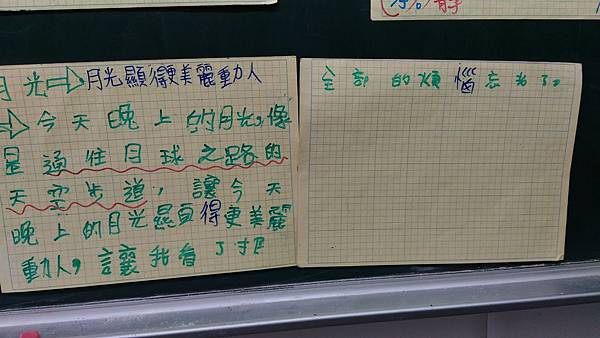 月光⇒月光顯得更美麗動人
⇒今天晚上的月光,像
是通往月球之路的
天空步道,讓今天
晚上的月光顯得更美麗
動人,讓我看了把
全部的煩惱忘光了。